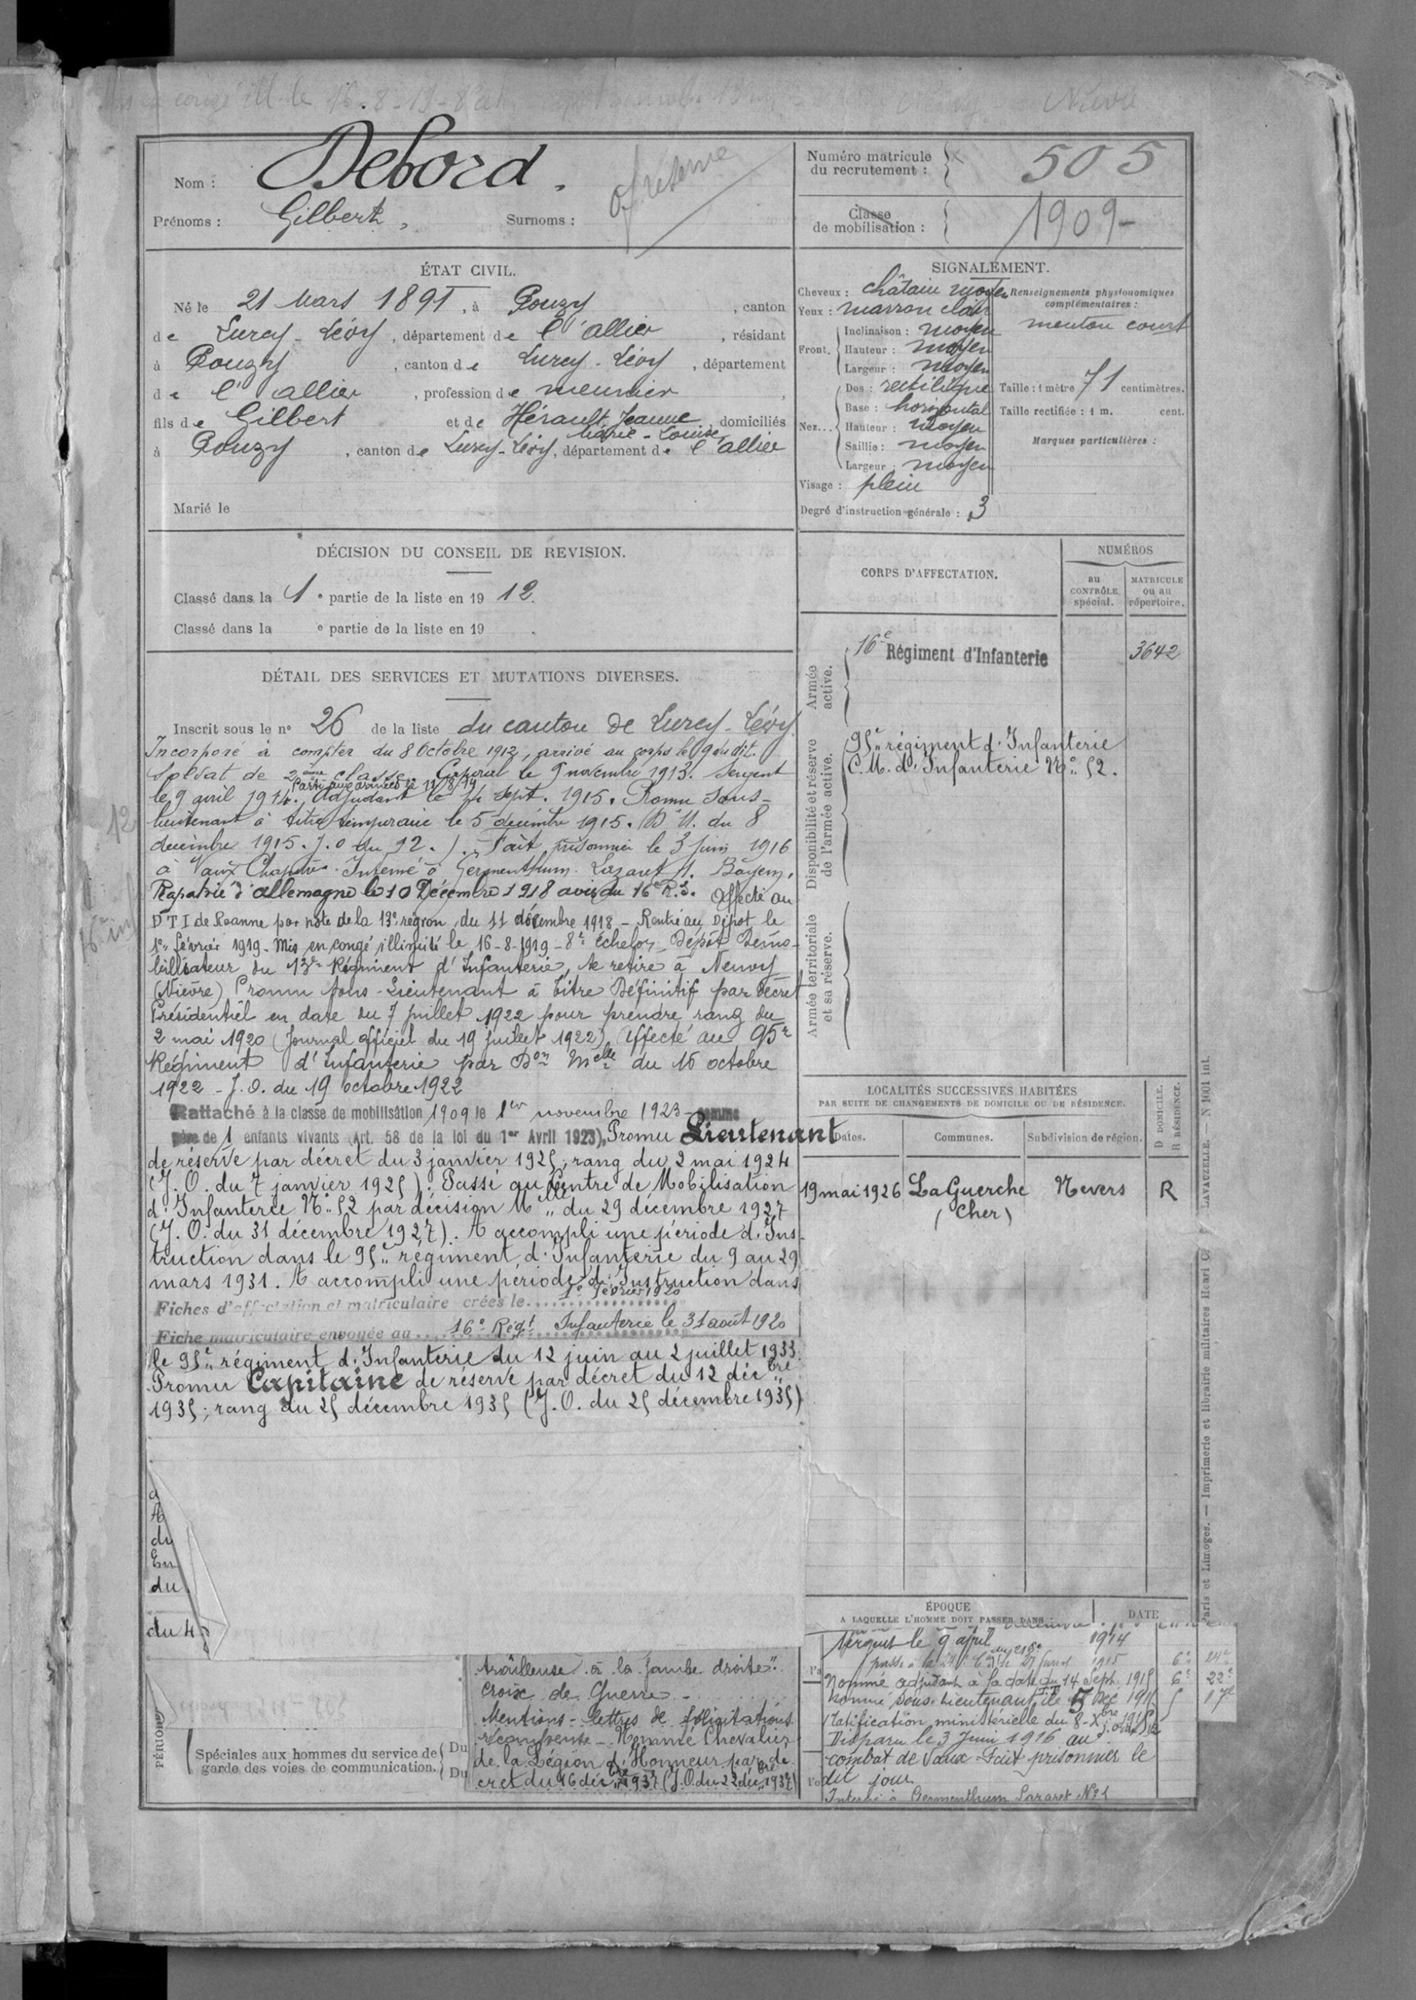 Nom : Debord.
Prénoms : Gilbert, Surnoms :
of réserve
Numéro matricule
du recrutement : 505
Classe
de mobilisation : 1909-
ÉTAT CIVIL.
Né le 21 Mars 1891, à Pouzy, canton
de Lurcy-Lévy, département de l'Allier, résidant
à Pouzy, canton de Lurcy-Lévy, département
de l'Allier, profession de meunier,
fils de Gilbert et de Hérault Jeanne domiciliés
Marie-Louise
à Pouzy, canton de Lurcy-Lévy, département de l'Allier
Marié le
SIGNALEMENT.
Cheveux : châtain moyen
Yeux : marron clair
Front. Inclinaison : moyen
Hauteur : moyen
Largeur : moyen
Nez... Dos : rectiligne
Base : horizontal
Hauteur : moyen
Saillie : moyen
Largeur : moyen
Visage : plein
Degré d'instruction générale : 3
Renseignements physionomiques
complémentaires :
menton court
Taille : 1 mètre 71 centimètres.
Taille rectifiée : 1 m. cent.
Marques particulières :
DÉCISION DU CONSEIL DE REVISION.
Classé dans la 1e partie de la liste en 1912.
Classé dans la e partie de la liste en 19 .
CORPS D'AFFECTATION.
NUMÉROS
au
CONTRÔLE
spécial.
MATRICULE
ou au
répertoire.
Armée
active.
16e Régiment d'Infanterie 3642
Disponibilité et réserve
de l'armée active.
95e régiment d'Infanterie
C.M. d'Infanterie No 52.
Armée territoriale
et sa réserve.
DÉTAIL DES SERVICES ET MUTATIONS DIVERSES.
Inscrit sous le no 26 de la liste du canton de Lurcy-Lévy
Incorporé à compter du 8 Octobre 1912, arrivé au corps le 9 du dit.
Soldat de 2ème classe. Caporal le 9 novembre 1913. Sergent
Parti aux armées le
le 9 avril 1914. Adjudant le 14 Sept. 1915. Promu Sous-
lieutenant à titre temporaire le 5 décembre 1915. (D. M. du 8
décembre 1915. J.O du 12.). Fait prisonnier le 3 Juin 1916
à Vaux Chapitre Interné à Germersheim Lazaret Bayern.
Rapatrié d'Allemagne le 10 Décembre 1918 avis du 16e R.I. Affecté au
DTI de Roanne par note de la 13e région du 11 décembre 1918 - Rentré au Dépôt le
1er février 1919 - Mis en congé illimité le 16-8-1919 - 8e échelon Dépôt Démo-
bilisateur du 13e Régiment d'Infanterie, se retire à Neuvy
(Nièvre) Promu Sous-Lieutenant à titre Définitif par Décret
Présidentiel en date du 7 juillet 1922 pour prendre rang du
2 mai 1920 (Journal officiel du 19 juillet 1922) Affecté au 95e
Régiment d'Infanterie par Don Melle du 16 octobre
1922 - J.O. du 19 octobre 1922
Rattaché à la classe de mobilisation 1909 le 1er novembre 1923 - comme
père de 1 enfants vivants (Art. 58 de la loi du 1er Avril 1923), Promu Lieutenant
de réserve par décret du 3 janvier 1925; rang du 2 mai 1924
(J.O. du 7 janvier 1925). Passé au Centre de Mobilisation
d'Infanterie No 52 par décision Melle du 29 décembre 1927
(J.O. du 31 décembre 1927). A accompli une période d'Ins-
truction dans le 95e régiment d'Infanterie du 9 au 29
mars 1931. A accompli une période d'Instruction dans
Fiches d'affectation et matriculaire créées le 1er Février 1920
Fiche matriculaire envoyée au 16e Régt Infanterie le 31 août 1920
le 95e régiment d'Infanterie du 12 juin au 2 juillet 1933.
Promu Capitaine de réserve par décret du 12 décbre
1935; rang du 25 décembre 1935 (J.O. du 25 décembre 1935)
LOCALITÉS SUCCESSIVES HABITÉES
PAR SUITE DE CHANGEMENTS DE DOMICILE OU DE RÉSIDENCE.
Dates. Communes. Subdivision de région. D DOMICILE. R RÉSIDENCE.
19 mai 1926 La Guerche Nevers R
(Cher)
A
du
du
du 4
ÉPOQUE
A LAQUELLE L'HOMME DOIT PASSER DANS :
DATE
Sergent le 9 april 1914
Nommé adjudant à la date du 14 Sept. 1915 6e 22e
Nommé Sous-Lieutenant le 5 Dec 1915
Ratification ministérielle du 8-Xbre 1915
Disparu le 3 Juin 1916 au
combat de Vaux Fait prisonnier le
dit jour
Interné à Germersheim Lazaret
PÉRIODE
Spéciales aux hommes du service de
garde des voies de communication.
Du
Du
trailleuse à la jambe droite".
Croix de Guerre.
Mentions - lettres de félicitations
récompense - Nommé Chevalier
de la Légion d'Honneur par dé-
cret du 16 décbre 1937 (J.O. du 22 décbre 1937)
Paris et Limoges. — Imprimerie et librairie militaires Henri C LAVAUZELLE. — N 1001 int.